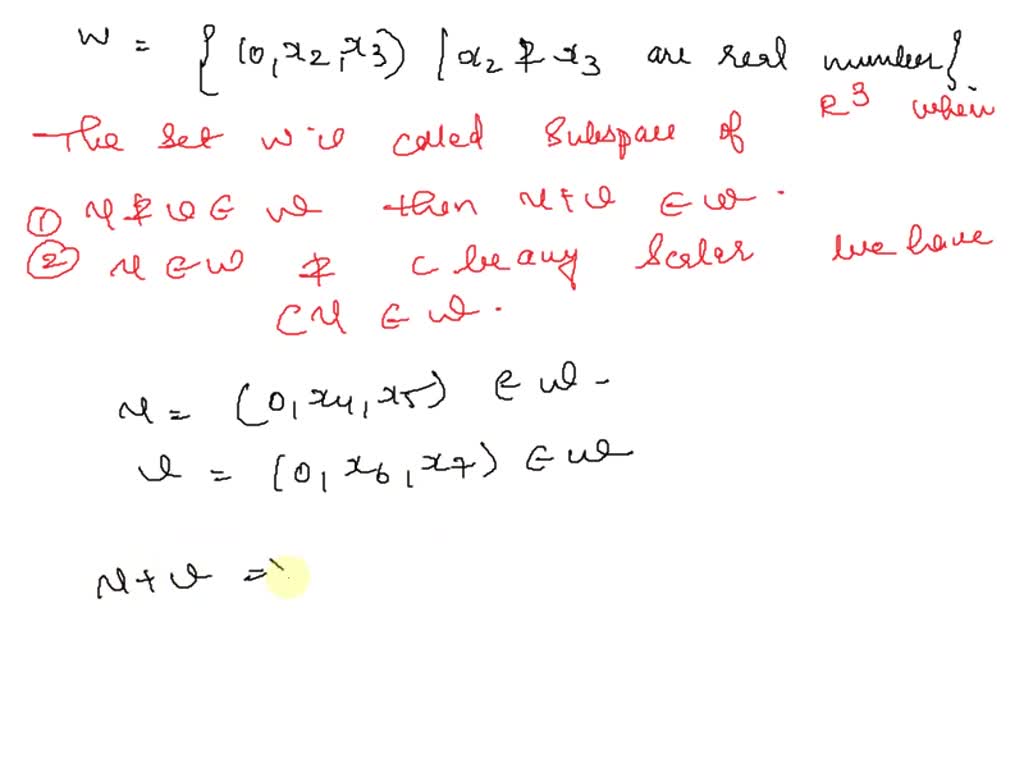 W = { (0, x2, x3) | x2 & x3 are real number }.
The set W is called Subspace of R^3 when
① u & v ∈ W then u + v ∈ W.
② u ∈ W & c be any Scaler we have
cu ∈ W.
u = (0, x4, x5) ∈ W.
v = (0, x6, x7) ∈ W
u + v =